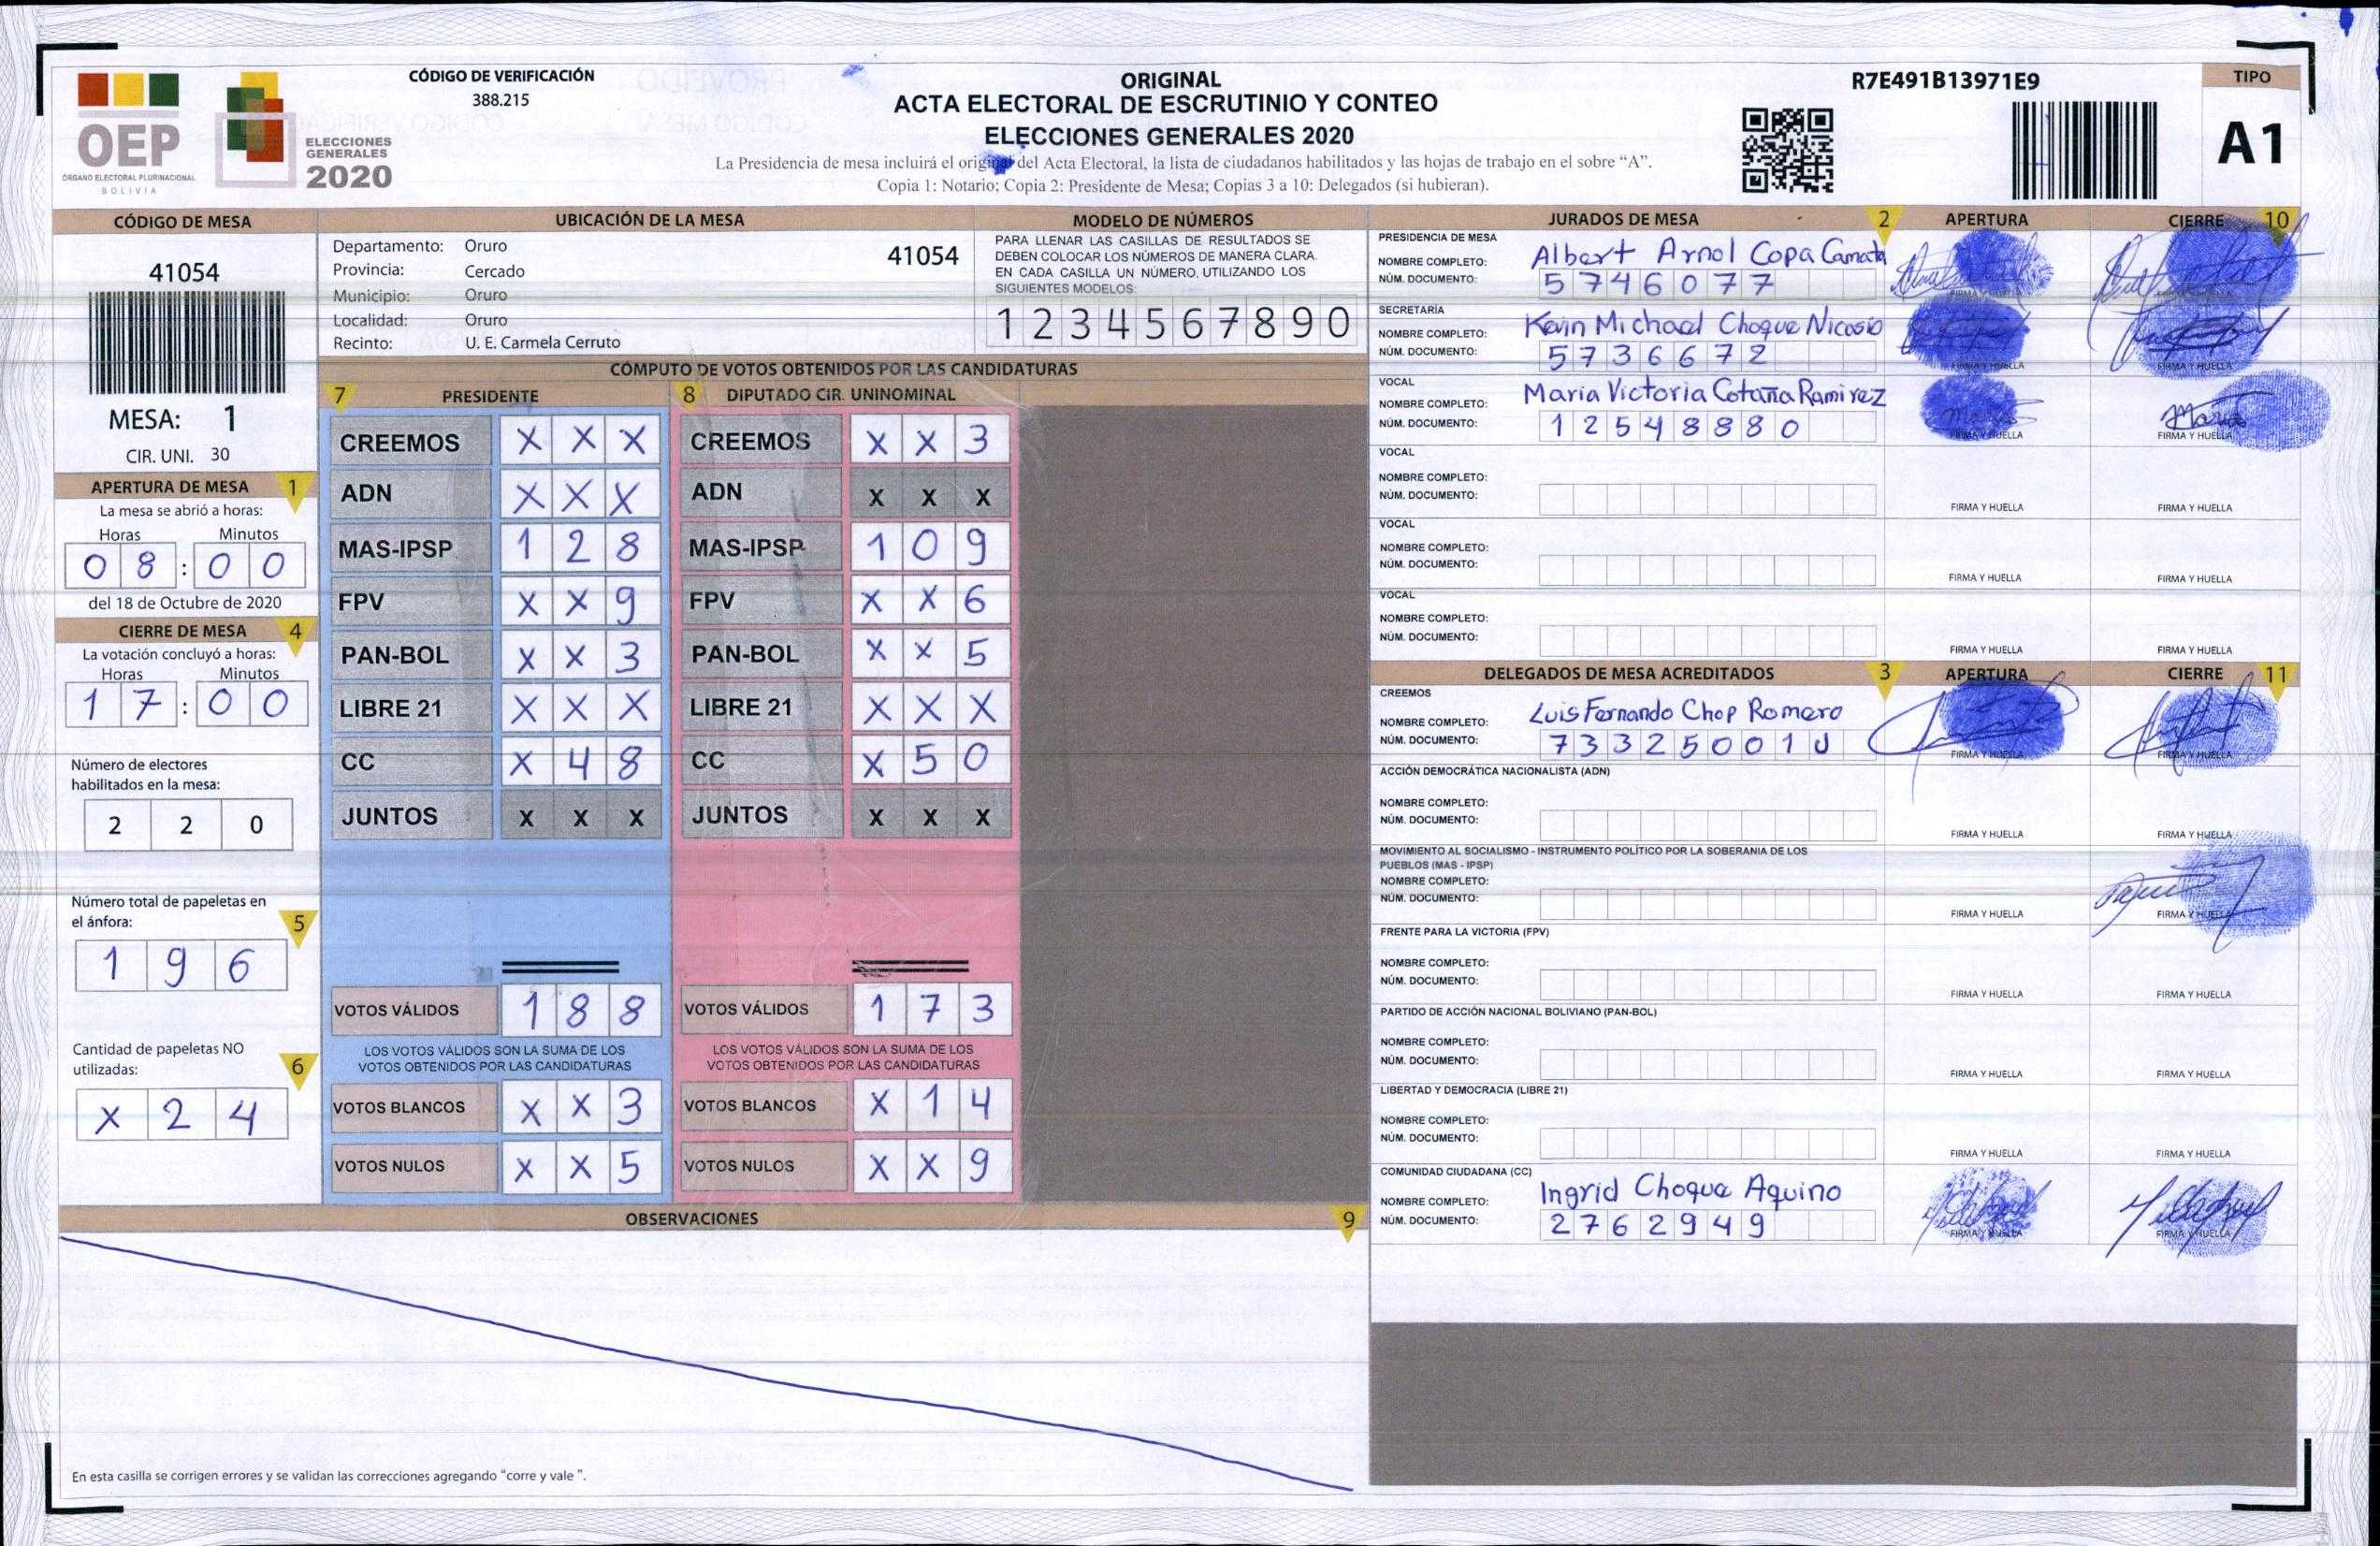 OEP
ÓRGANO ELECTORAL PLURINACIONAL
BOLIVIA
ELECCIONES
GENERALES
2020
CÓDIGO DE VERIFICACIÓN
388.215
ORIGINAL
ACTA ELECTORAL DE ESCRUTINIO Y CONTEO
ELECCIONES GENERALES 2020
La Presidencia de mesa incluirá el original del Acta Electoral, la lista de ciudadanos habilitados y las hojas de trabajo en el sobre “A”.
Copia 1: Notario; Copia 2: Presidente de Mesa; Copias 3 a 10: Delegados (si hubieran).
R7E491B13971E9
TIPO
A1
CÓDIGO DE MESA
41054
MESA: 1
CIR. UNI. 30
APERTURA DE MESA 1
La mesa se abrió a horas:
Horas Minutos
0 8 : 0 0
del 18 de Octubre de 2020
CIERRE DE MESA 4
La votación concluyó a horas:
Horas Minutos
1 7 : 0 0
Número de electores
habilitados en la mesa:
2 2 0
Número total de papeletas en
el ánfora: 5
1 9 6
Cantidad de papeletas NO
utilizadas: 6
X 2 4
UBICACIÓN DE LA MESA
Departamento: Oruro 41054
Provincia: Cercado
Municipio: Oruro
Localidad: Oruro
Recinto: U. E. Carmela Cerruto
MODELO DE NÚMEROS
PARA LLENAR LAS CASILLAS DE RESULTADOS SE
DEBEN COLOCAR LOS NÚMEROS DE MANERA CLARA.
EN CADA CASILLA UN NÚMERO, UTILIZANDO LOS
SIGUIENTES MODELOS:
1 2 3 4 5 6 7 8 9 0
CÓMPUTO DE VOTOS OBTENIDOS POR LAS CANDIDATURAS
7 PRESIDENTE
CREEMOS X X X
ADN X X X
MAS-IPSP 1 2 8
FPV X X 9
PAN-BOL X X 3
LIBRE 21 X X X
CC X 4 8
JUNTOS X X X
VOTOS VÁLIDOS 1 8 8
LOS VOTOS VÁLIDOS SON LA SUMA DE LOS
VOTOS OBTENIDOS POR LAS CANDIDATURAS
VOTOS BLANCOS X X 3
VOTOS NULOS X X 5
8 DIPUTADO CIR. UNINOMINAL
CREEMOS X X 3
ADN X X X
MAS-IPSP 1 0 9
FPV X X 6
PAN-BOL X X 5
LIBRE 21 X X X
CC X 5 0
JUNTOS X X X
VOTOS VÁLIDOS 1 7 3
LOS VOTOS VÁLIDOS SON LA SUMA DE LOS
VOTOS OBTENIDOS POR LAS CANDIDATURAS
VOTOS BLANCOS X 1 4
VOTOS NULOS X X 9
OBSERVACIONES 9
En esta casilla se corrigen errores y se validan las correcciones agregando “corre y vale ”.
JURADOS DE MESA 2 APERTURA CIERRE 10
PRESIDENCIA DE MESA
NOMBRE COMPLETO: Albert Arnol Copa Camata
NÚM. DOCUMENTO: 5 7 4 6 0 7 7
FIRMA Y HUELLA FIRMA Y HUELLA
SECRETARÍA
NOMBRE COMPLETO: Kevin Michael Choque Nicosio
NÚM. DOCUMENTO: 5 7 3 6 6 7 2
FIRMA Y HUELLA FIRMA Y HUELLA
VOCAL
NOMBRE COMPLETO: Maria Victoria Cotaña Ramirez
NÚM. DOCUMENTO: 1 2 5 4 8 8 8 0
Maria Maria
FIRMA Y HUELLA FIRMA Y HUELLA
VOCAL
NOMBRE COMPLETO:
NÚM. DOCUMENTO:
FIRMA Y HUELLA FIRMA Y HUELLA
VOCAL
NOMBRE COMPLETO:
NÚM. DOCUMENTO:
FIRMA Y HUELLA FIRMA Y HUELLA
VOCAL
NOMBRE COMPLETO:
NÚM. DOCUMENTO:
FIRMA Y HUELLA FIRMA Y HUELLA
DELEGADOS DE MESA ACREDITADOS 3 APERTURA CIERRE 11
CREEMOS
NOMBRE COMPLETO: Luis Fernando Chop Romero
NÚM. DOCUMENTO: 7 3 3 2 5 0 0 1 U
FIRMA Y HUELLA FIRMA Y HUELLA
ACCIÓN DEMOCRÁTICA NACIONALISTA (ADN)
NOMBRE COMPLETO:
NÚM. DOCUMENTO:
FIRMA Y HUELLA FIRMA Y HUELLA
MOVIMIENTO AL SOCIALISMO - INSTRUMENTO POLÍTICO POR LA SOBERANIA DE LOS
PUEBLOS (MAS - IPSP)
NOMBRE COMPLETO:
NÚM. DOCUMENTO:
FIRMA Y HUELLA FIRMA Y HUELLA
FRENTE PARA LA VICTORIA (FPV)
NOMBRE COMPLETO:
NÚM. DOCUMENTO:
FIRMA Y HUELLA FIRMA Y HUELLA
PARTIDO DE ACCIÓN NACIONAL BOLIVIANO (PAN-BOL)
NOMBRE COMPLETO:
NÚM. DOCUMENTO:
FIRMA Y HUELLA FIRMA Y HUELLA
LIBERTAD Y DEMOCRACIA (LIBRE 21)
NOMBRE COMPLETO:
NÚM. DOCUMENTO:
FIRMA Y HUELLA FIRMA Y HUELLA
COMUNIDAD CIUDADANA (CC)
NOMBRE COMPLETO: Ingrid Choque Aquino
NÚM. DOCUMENTO: 2 7 6 2 9 4 9
FIRMA Y HUELLA FIRMA Y HUELLA